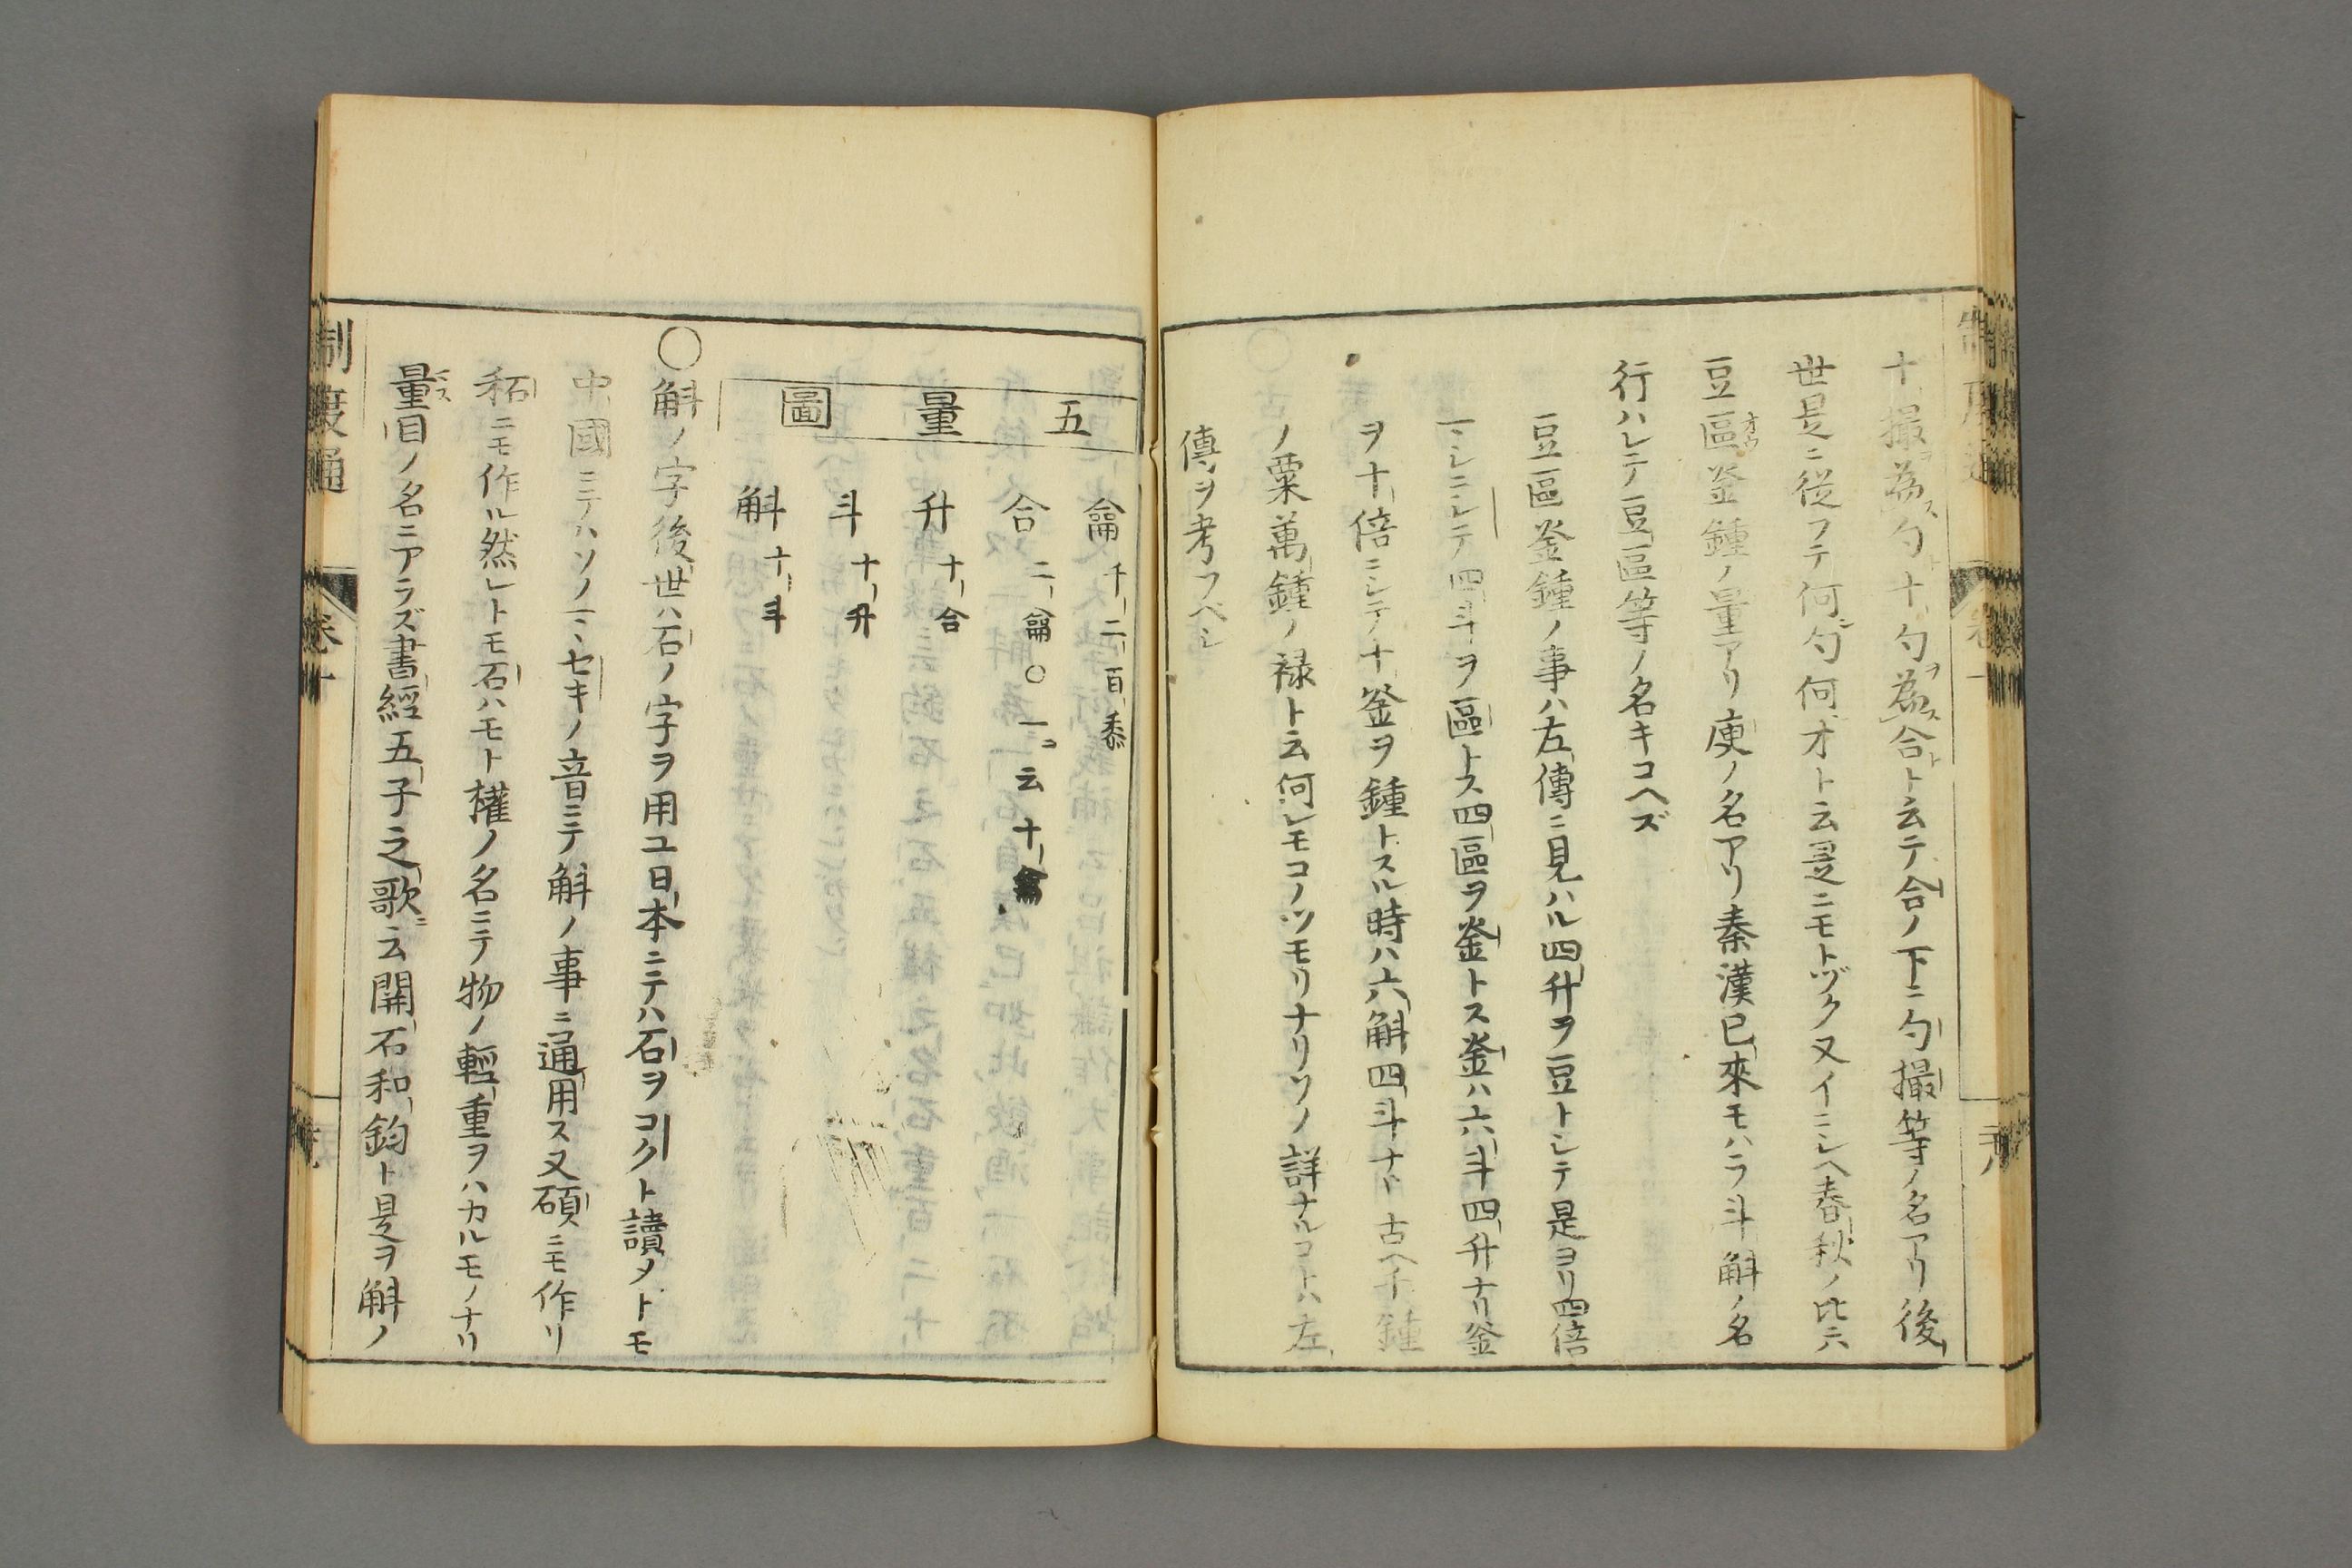 十撮爲勺十勺爲合ト云テ合ノ下ニ勺撮等ノ名アリ後
世是ニ從フテ何勺何才ト云是ニモトヅク又イニシヘ春秋ノ比六
豆區釜鍾ノ量アリ庾ノ名アリ秦漢已來モハラ斗斛ノ名
行ハレテ豆區等ノ名キコヘズ
豆區釜鍾ノ事ハ左傳ニ見ハル四升ヲ豆トシテ是ヨリ四倍
ニシテ四斗ヲ區トス四區ヲ釜トス釜ハ六斗四升ナリ釜
ヲ十倍ニシテ十釜ヲ鍾トスル時ハ六斛四斗ナド古ヘ千鍾
ノ粟萬鍾ノ禄ト云何レモコノツモリナリソノ詳ナルコトハ左
傳ヲ考フベシ
五量圖
龠 千二百黍
合 二龠○一ニ云十龠
升 十合
斗 十升
斛 十斗
○斛ノ字後世ハ石ノ字ヲ用ユ日本ニテハ石ヲコクト讀メトモ
中國ニテハソノママセキノ音ニテ斛ノ事ニ通用ス又碩ニモ作リ
䄷ニモ作ル然レトモ石ハモト權ノ名ニテ物ノ輕重ヲハカルモノナリ
量目ノ名ニアラズ書經五子之歌ニ云開石和鈞ト是ヲ斛ノ
制度通
卷十